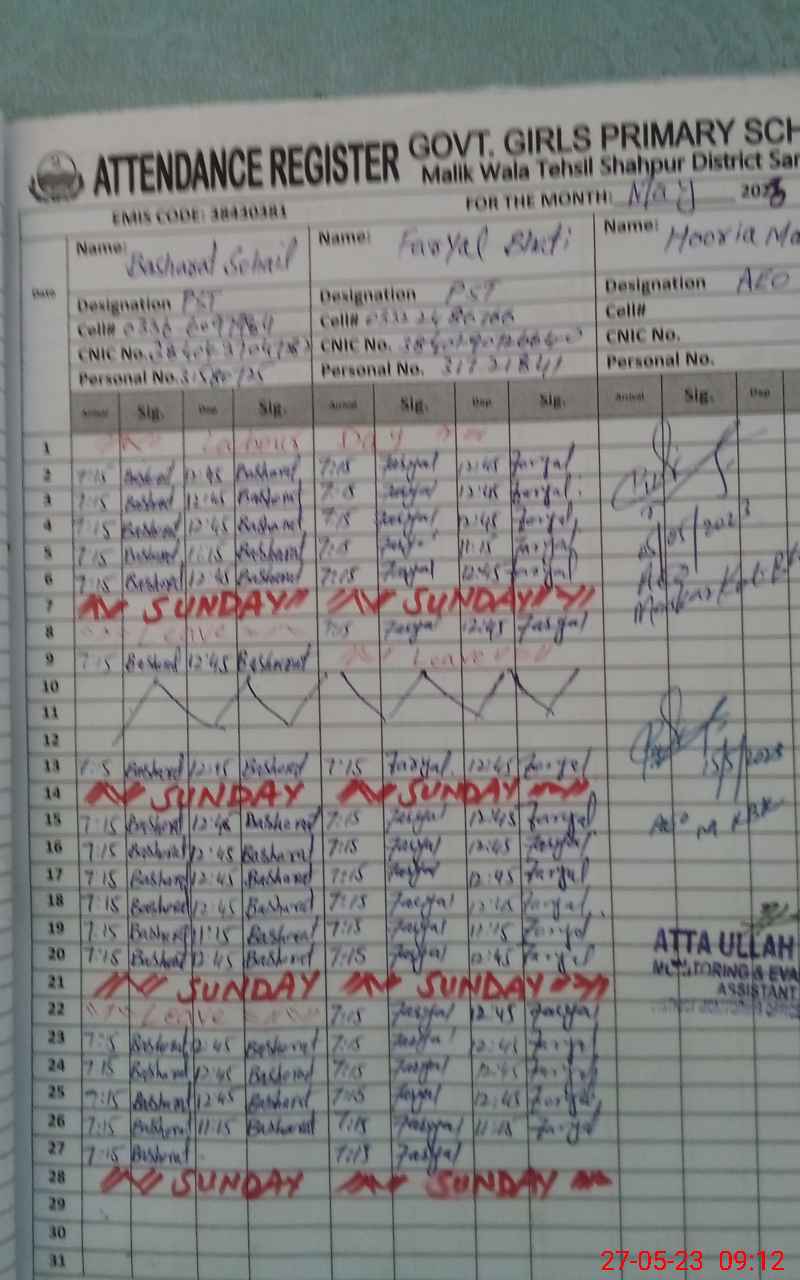 ATTENDANCE REGISTER GOVT. GIRLS PRIMARY SCH
Malik Wala Tehsil Shahpur District Sar
EMIS CODE: 38430381 FOR THE MONTH: May 2023
Name: Basharat Sohail Name: Faryal Bhati Name: Hooria Ma
Date
Designation PST Designation PST Designation AEO
Cell# Cell# Cell#
CNIC No. CNIC No. CNIC No.
Personal No. Personal No. Personal No.
Arrival Sig. Dep Sig. Arrival Sig. Dep Sig. Arrival Sig. Dep
1 Labour Day
2 7:15 Basharat 12:45 Basharat 7:15 Faryal 12:45 Faryal
3 7:15 Basharat 12:45 Basharat 7:15 Faryal 12:45 Faryal
4 7:15 Basharat 12:45 Basharat 7:15 Faryal 12:45 Faryal
5 7:15 Basharat 11:15 Basharat 7:15 Faryal 11:15 Faryal
6 7:15 Basharat 12:45 Basharat 7:15 Faryal 12:45 Faryal
7 SUNDAY SUNDAY
8 Leave 7:15 Faryal 12:45 Faryal
9 7:15 Basharat 12:45 Basharat Leave
10
11
12
13 7:15 Basharat 12:45 Basharat 7:15 Faryal 12:45 Faryal
14 SUNDAY SUNDAY
15 7:15 Basharat 12:45 Basharat 7:15 Faryal 12:45 Faryal
16 7:15 Basharat 12:45 Basharat 7:15 Faryal 12:45 Faryal
17 7:15 Basharat 12:45 Basharat 7:15 Faryal 12:45 Faryal
18 7:15 Basharat 12:45 Basharat 7:15 Faryal 12:45 Faryal
19 7:15 Basharat 11:15 Basharat 7:15 Faryal 11:15 Faryal
20 7:15 Basharat 12:45 Basharat 7:15 Faryal 12:45 Faryal
21 SUNDAY SUNDAY
22 Leave 7:15 Faryal 12:45 Faryal
23 7:15 Basharat 12:45 Basharat 7:15 Faryal 12:45 Faryal
24 7:15 Basharat 12:45 Basharat 7:15 Faryal 12:45 Faryal
25 7:15 Basharat 12:45 Basharat 7:15 Faryal 12:45 Faryal
26 7:15 Basharat 11:15 Basharat 7:15 Faryal 11:15 Faryal
27 7:15 Basharat 7:15 Faryal
28 SUNDAY SUNDAY
29
30
31
05/05/2023
15/5/2023
ATTA ULLAH
MONITORING & EVA
ASSISTANT
27-05-23 09:12